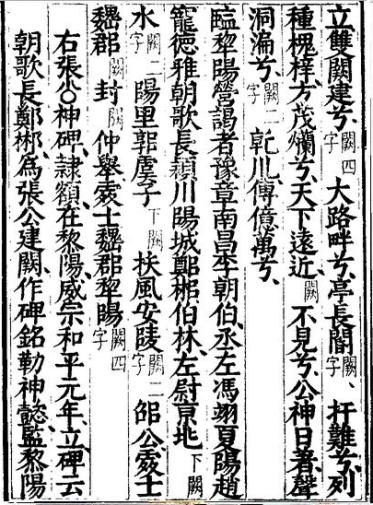 立雙闕建兮闕四字大路畔兮、亭長閽闕字、扞難兮、列
種槐梓方茂爛兮、天下遠近闕不見兮、公神日著、聲
洞徧兮、闕二字乾川、傳億萬兮、
監犂陽營謁者豫章南昌李朝伯、丞左馮翊夏陽趙
寵德雅、朝歌長潁川陽城鄭郴伯林、左尉京兆下闕
水闕二字陽里郭虔子下闕扶風安陵闕二字郃公處士
魏郡闕封闕仲舉處士魏郡犂陽闕四字
右張公神碑、隸額、在黎陽、威宗和平元年、立碑云
朝歌長鄭郴、為張公建闕、作碑銘勒神懿、監黎陽